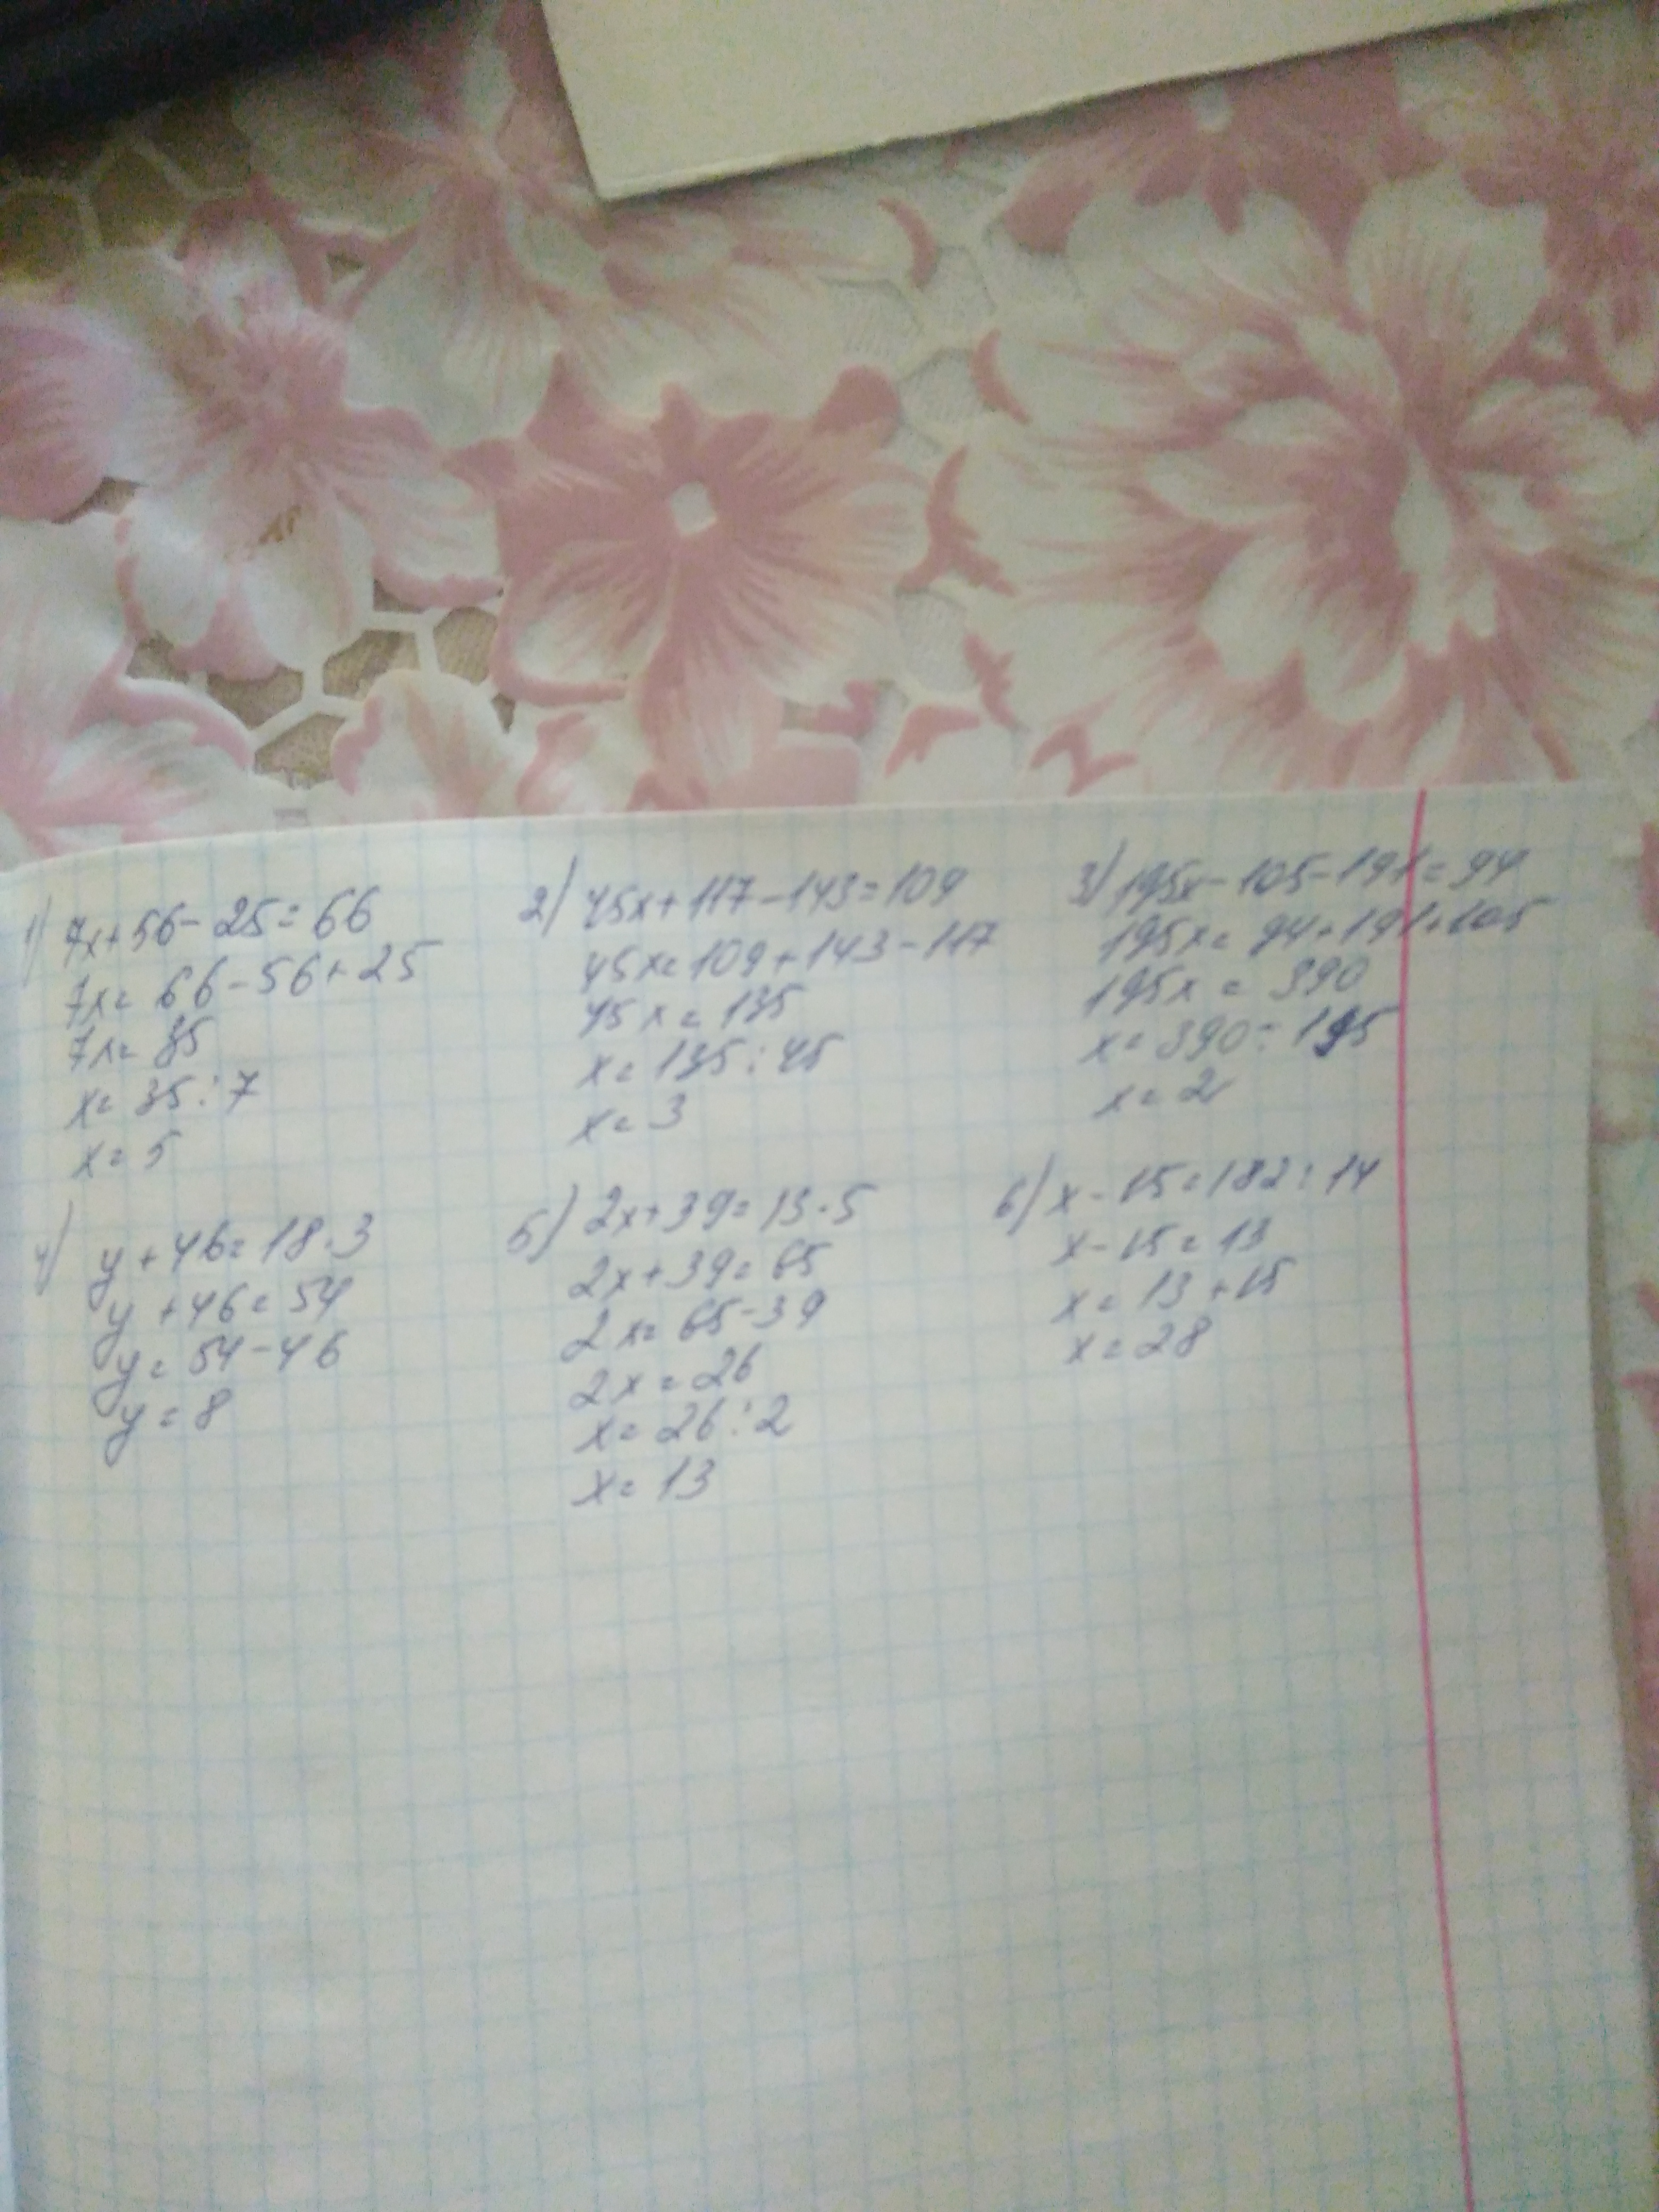 1) 7x+56-25=66
7x=66-56+25
7x=35
x=35:7
x=5
2) 45x+117-143=109
45x=109+143-117
45x=135
x=135:45
x=3
3) 195x-105-191=94
195x=94+191+105
195x=390
x=390:195
x=2
4) y+46=18·3
y+46=54
y=54-46
y=8
5) 2x+39=13·5
2x+39=65
2x=65-39
2x=26
x=26:2
x=13
6) x-15=182:14
x-15=13
x=13+15
x=28